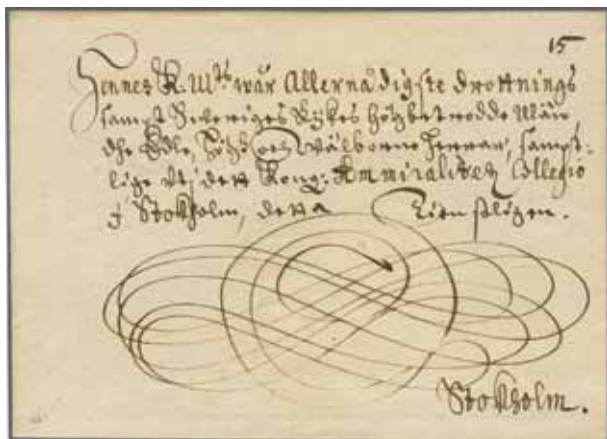 15
Hennes K. M:tz wår Allernådigste drottnings
sampt Sweriges Rykes högbetrodde Män,
dhe Edle, och Wälborne herrar, sampt-
lige Vtj dett Kong: Ammiralitetz Collegio
j Stokholm, detta Tienstligen.
Stokholm.